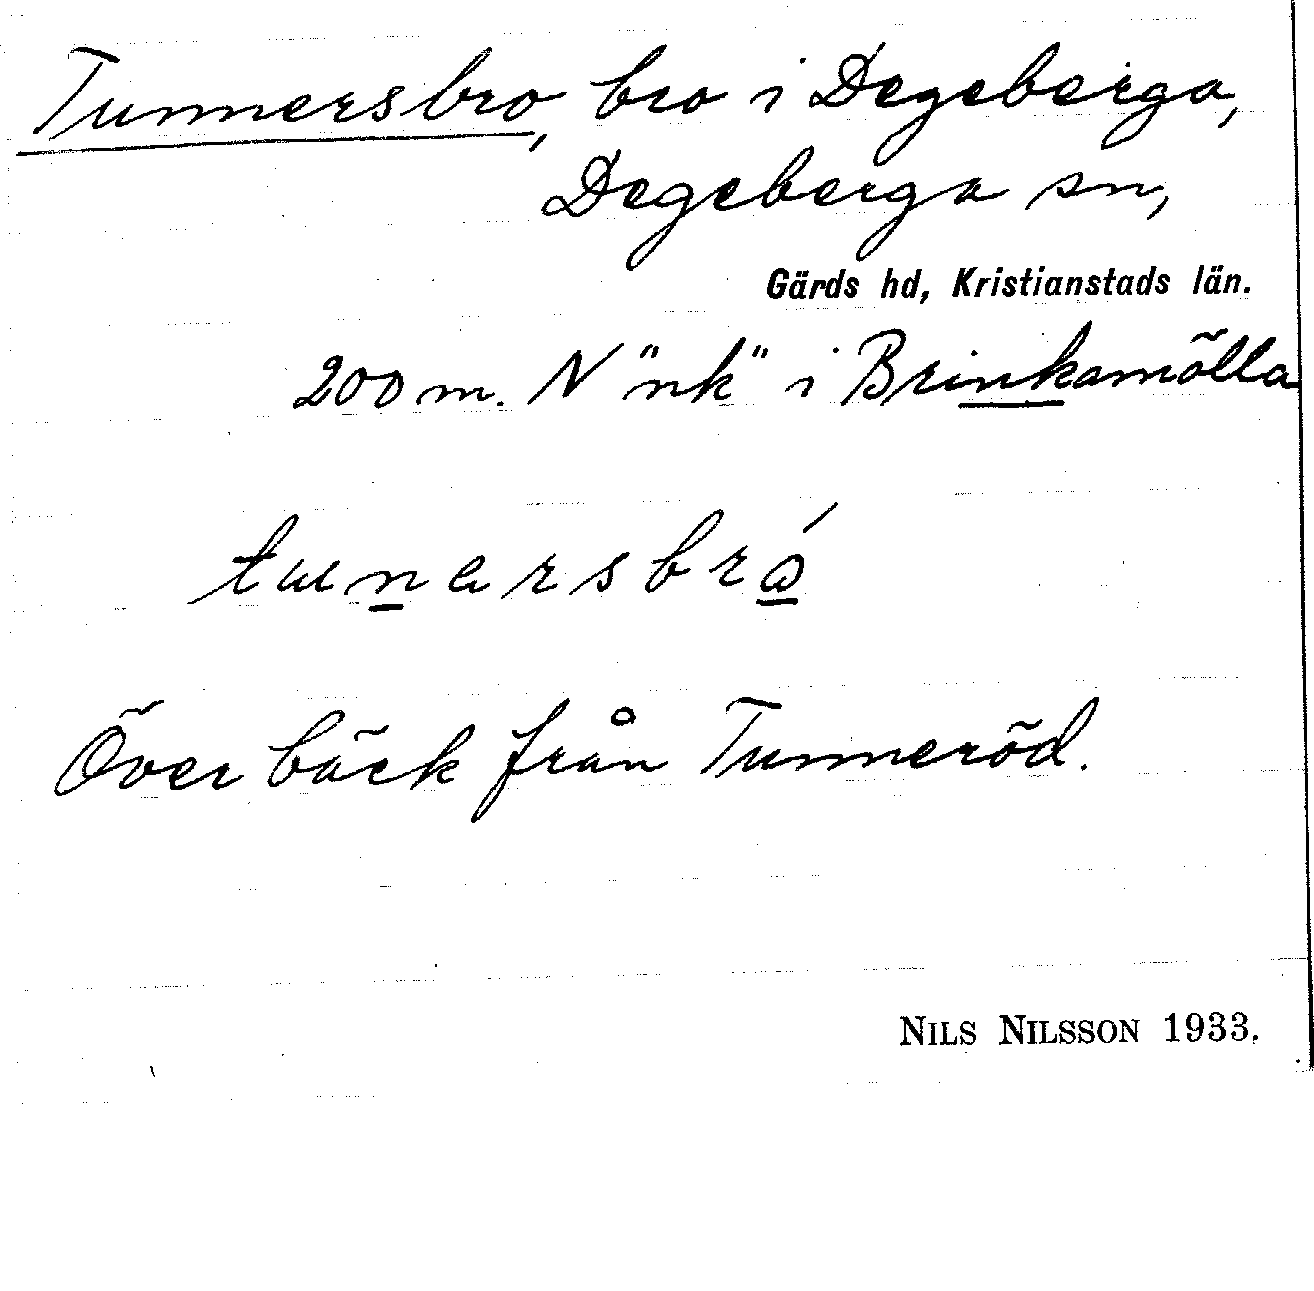 Tunnersbro, bro i Degeberga,
Degeberga sn,
Gärds hd, Kristianstads län.
200 m. N "nk" i Brinkamölla
tunersbró
Över bäck från Tunneröd.
NILS NILSSON 1933.